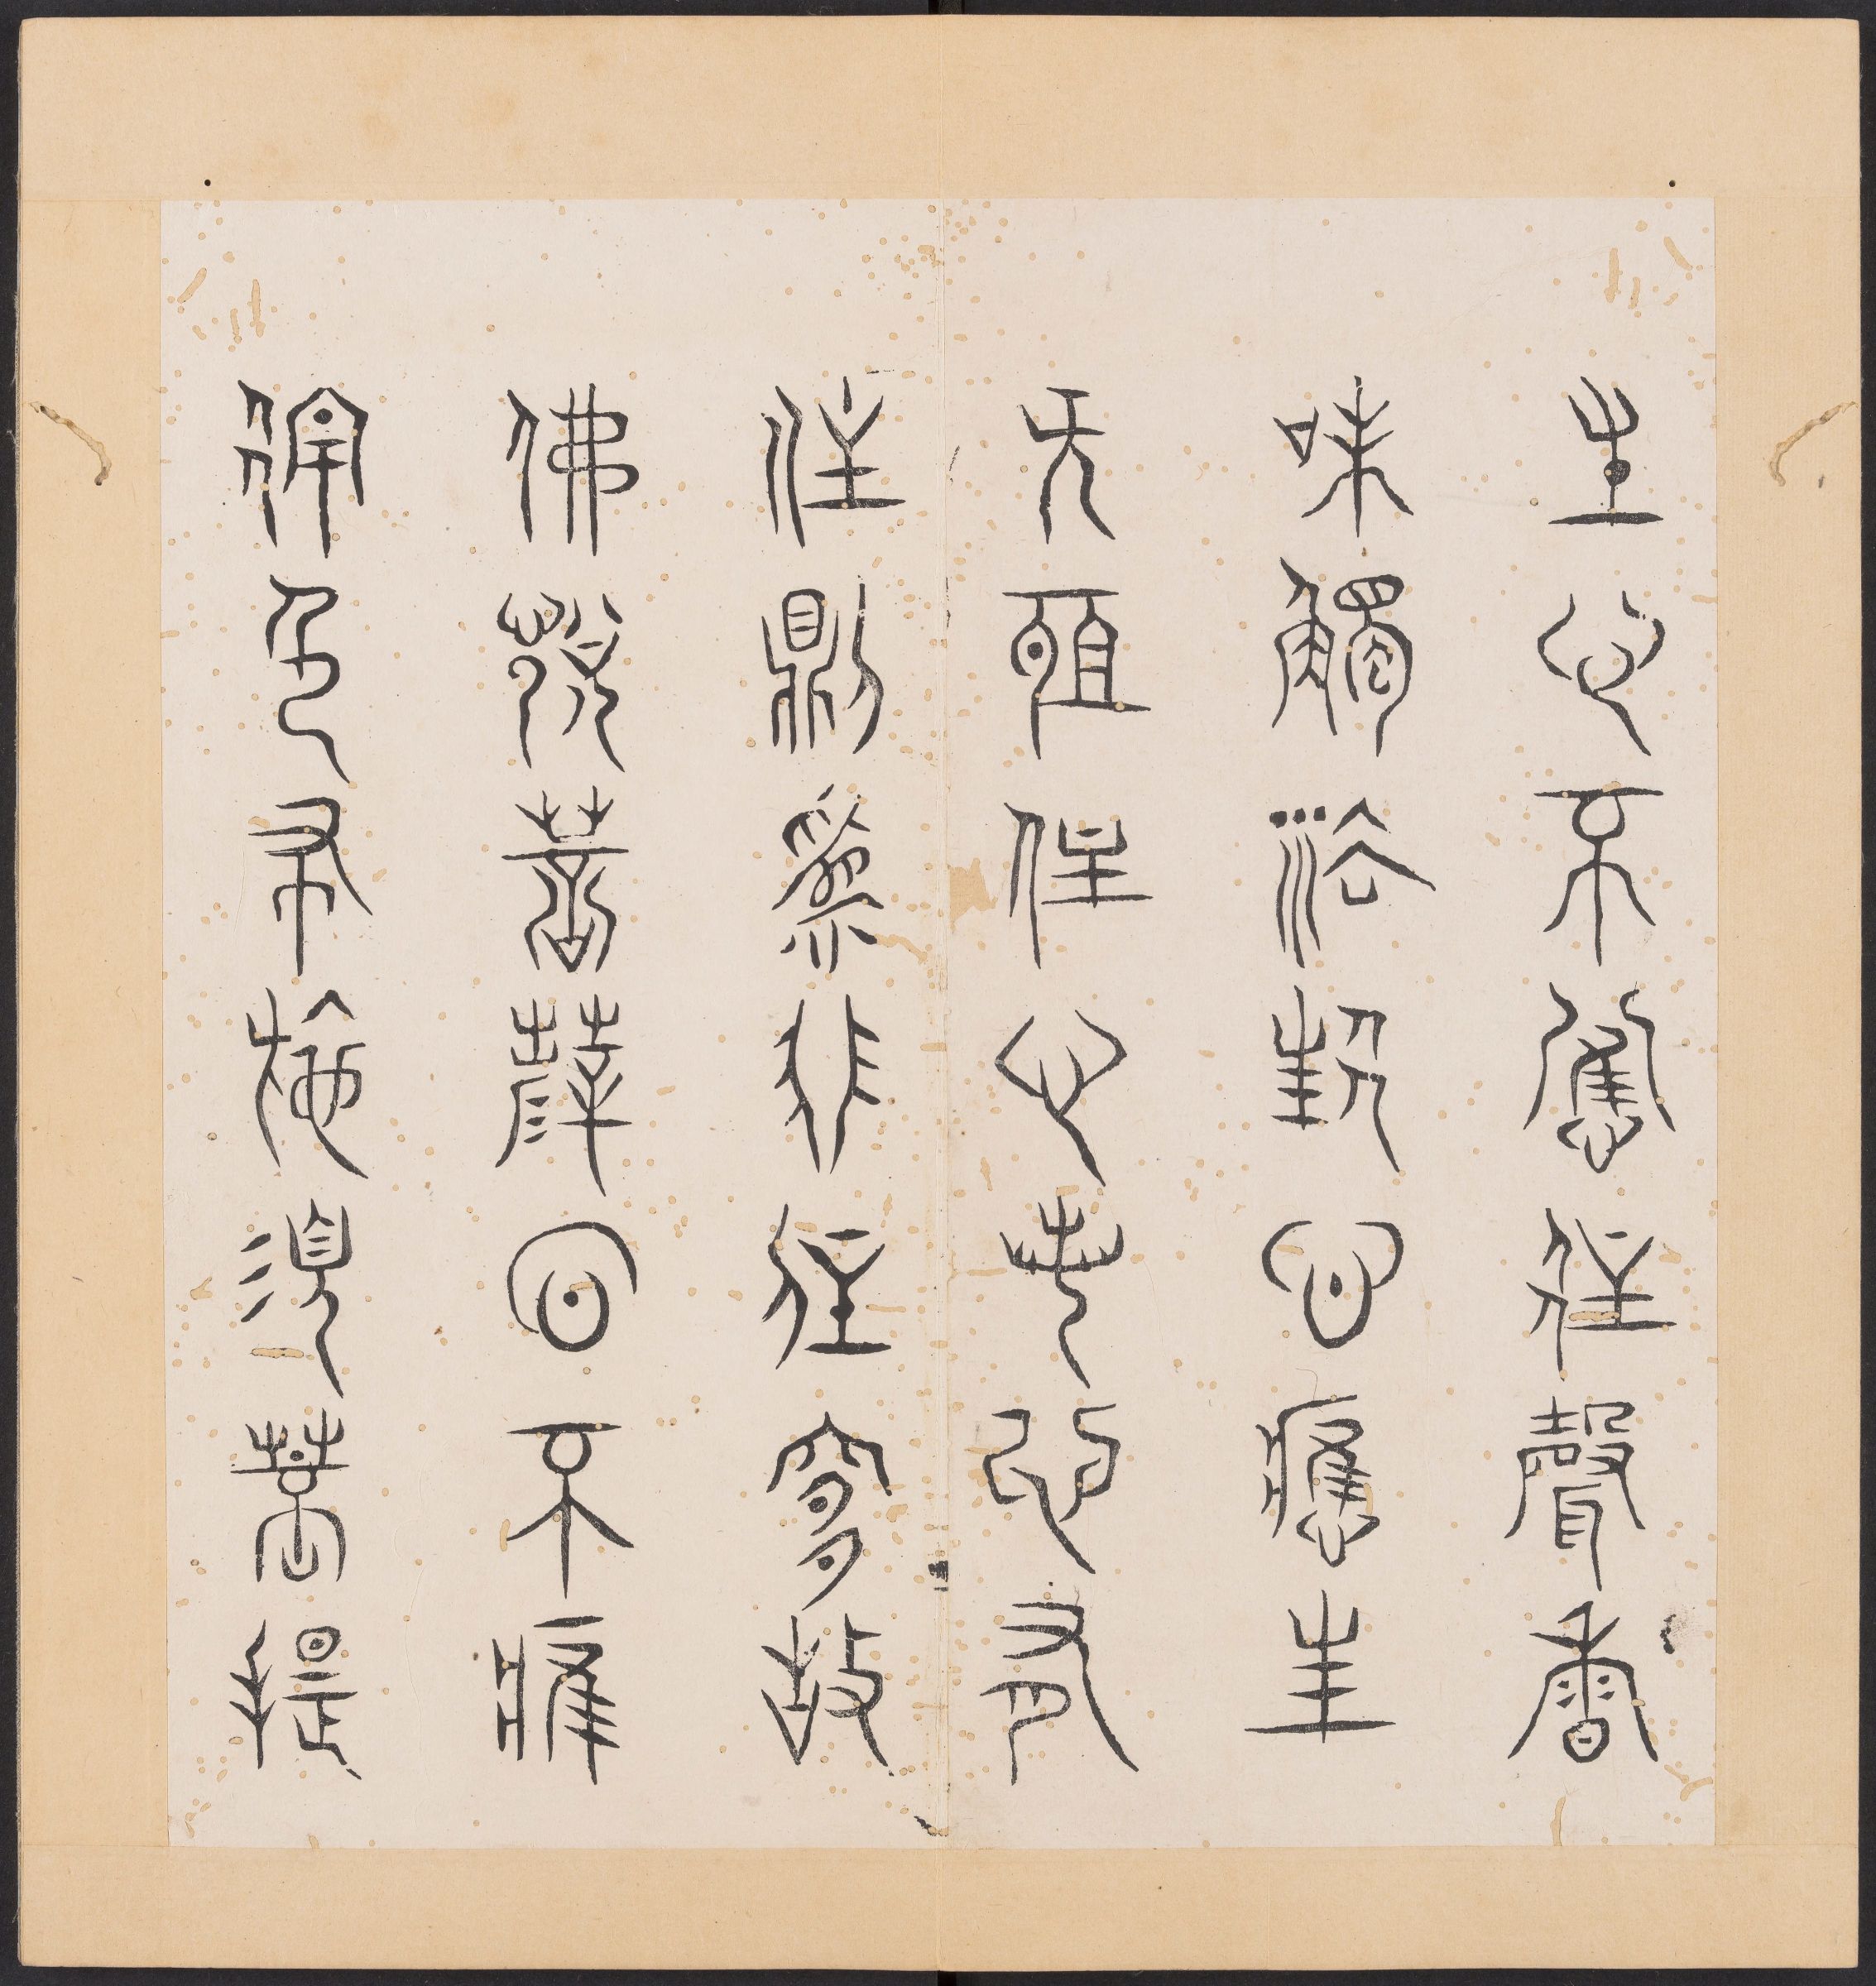 生心不應住聲香
味觸法生心應生
无所住心若心有
住則為非住是故
佛說菩薩心不應
住色布施須菩提